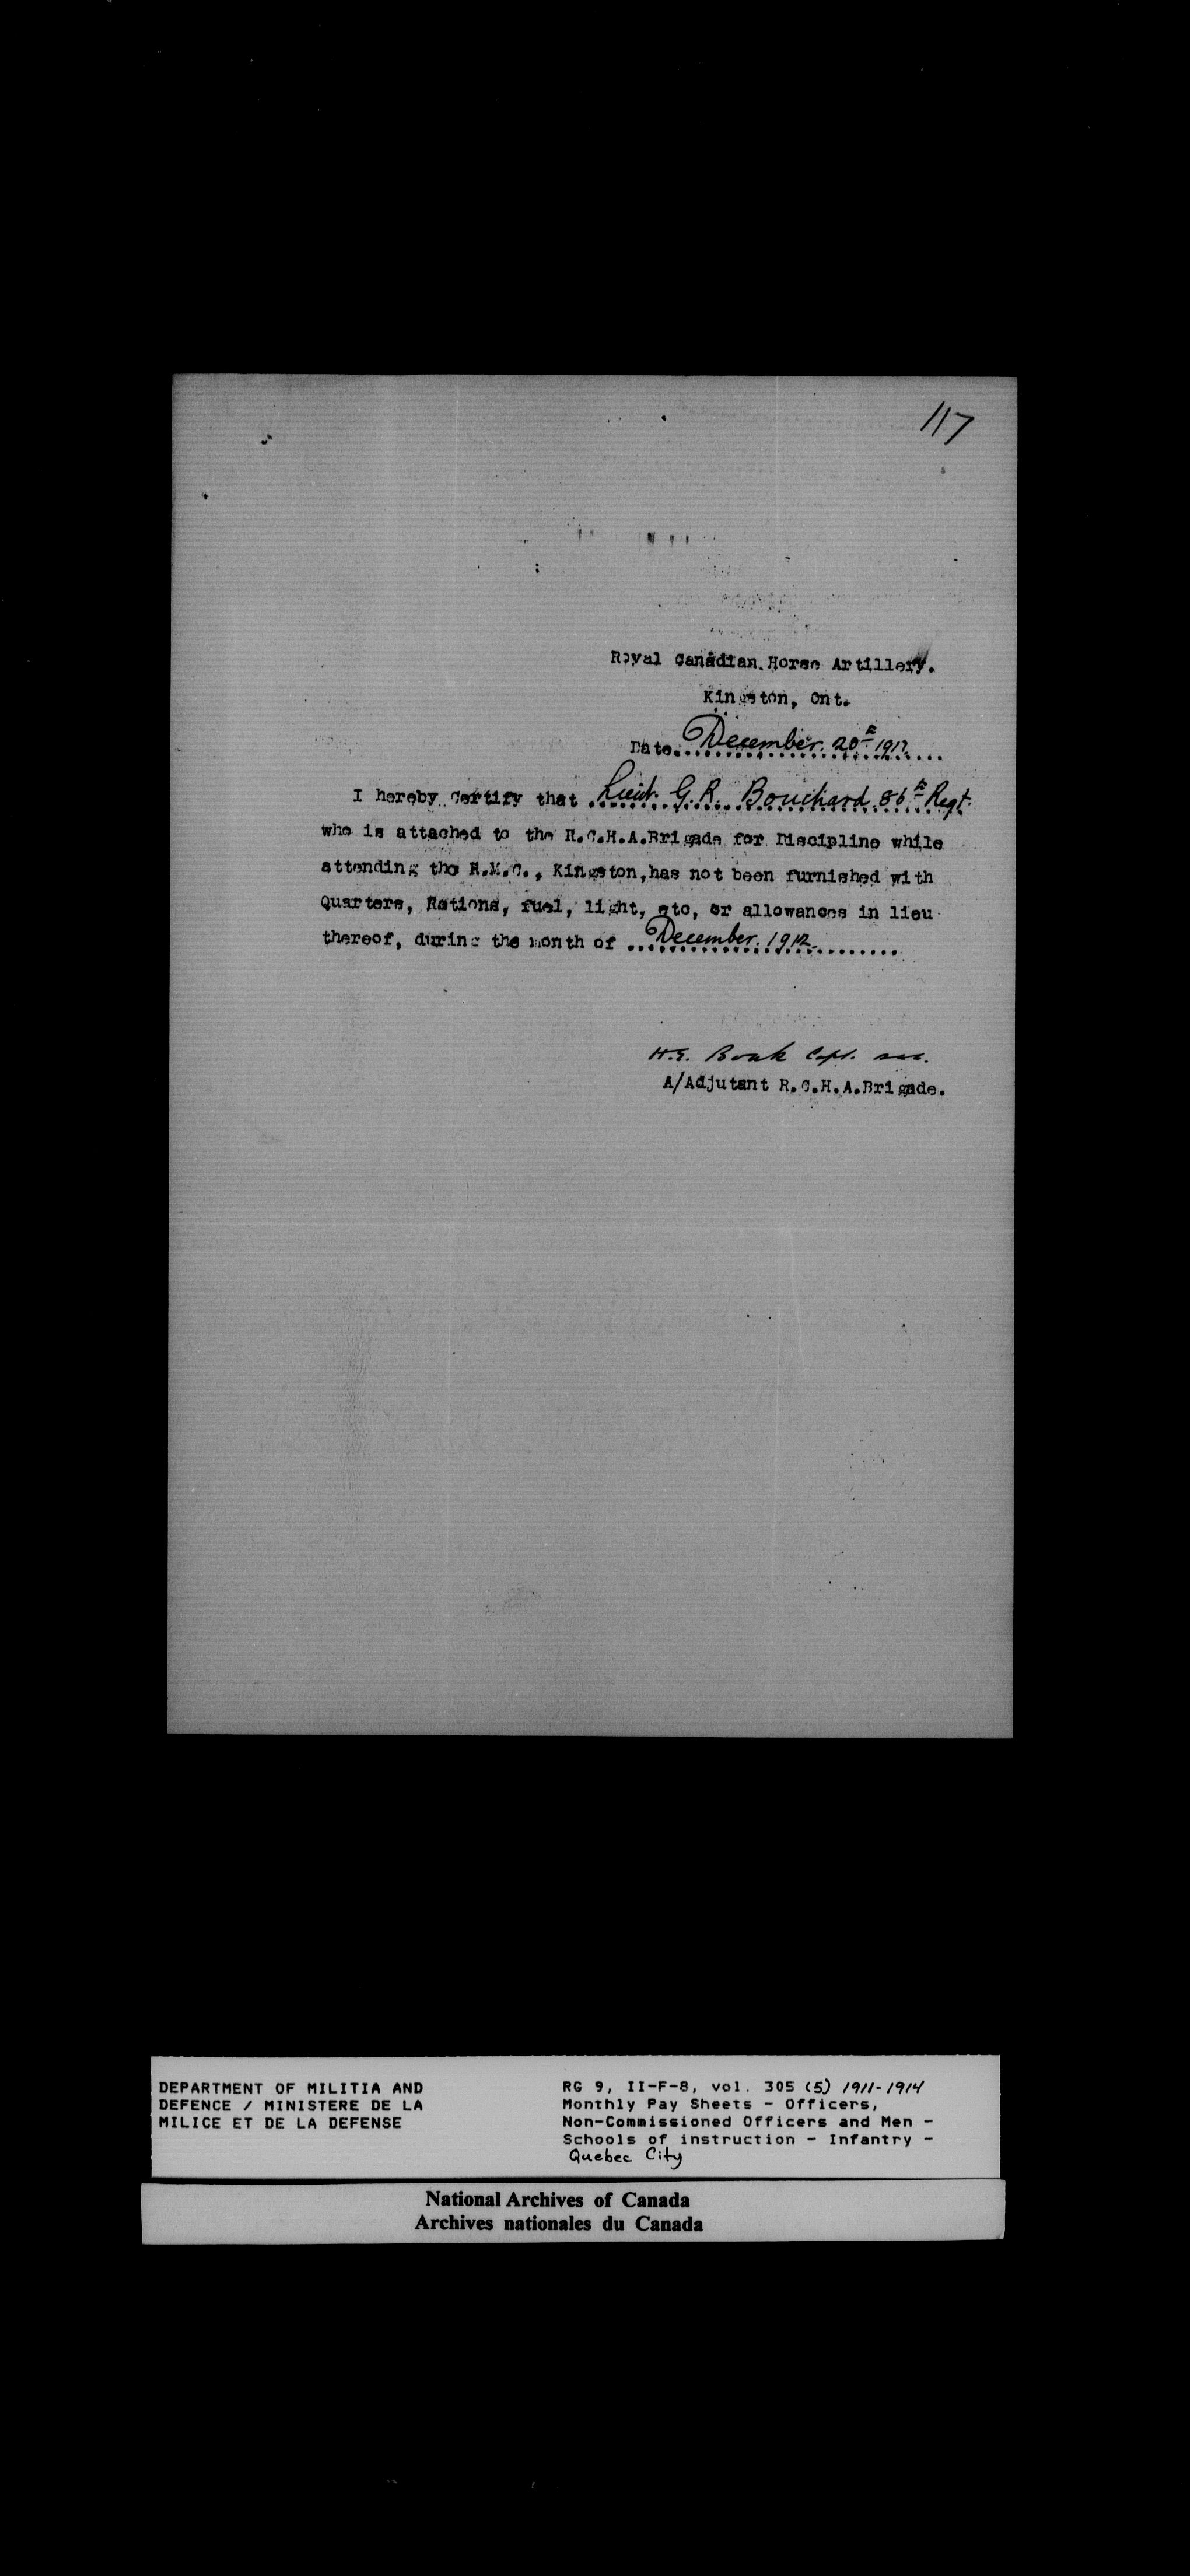 117
Royal Canadian Horse Artillery.
Kingston, Ont.
Date. December 20th 1912
I hereby certify that Lieut. G.R. Bouchard 86th Regt.
who is attached to the R.C.H.A.Brigade for Discipline while
attending the R.M.C., Kingston,has not been furnished with
Quarters, Rations, fuel, light, etc, or allowances in lieu
thereof, during the month of December 1912
H.E. Boak Capt.
A/Adjutant R.C.H.A.Brigade.
DEPARTMENT OF MILITIA AND
DEFENCE / MINISTERE DE LA
MILICE ET DE LA DEFENSE
RG 9, II-F-8, vol. 305 (5) 1911-1914
Monthly Pay Sheets - Officers,
Non-Commissioned Officers and Men -
Schools of instruction - Infantry -
Quebec City
National Archives of Canada
Archives nationales du Canada